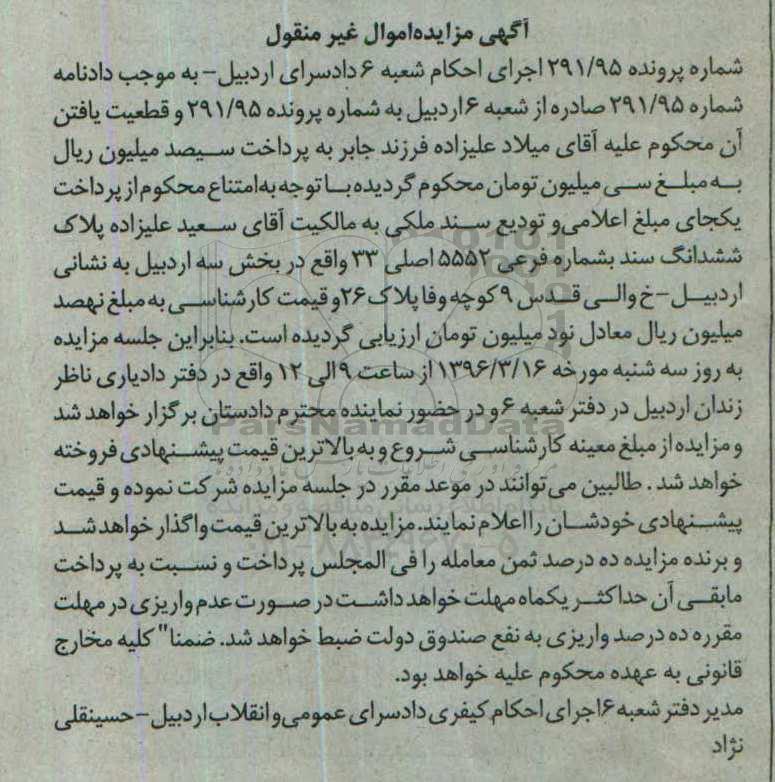 آگهی مزایده اموال غیر منقول
شماره پرونده ۲۹۱/۹۵ اجرای احکام شعبه ۶ دادسرای اردبیل- به موجب دادنامه
شماره ۲۹۱/۹۵ صادره از شعبه ۶ اردبیل به شماره پرونده ۲۹۱/۹۵ و قطعیت یافتن
آن محکوم علیه آقای میلاد علیزاده فرزند جابر به پرداخت سیصد میلیون ریال
به مبلغ سی میلیون تومان محکوم گردیده با توجه به امتناع محکوم از پرداخت
یکجای مبلغ اعلامی و تودیع سند ملکی به مالکیت آقای سعید علیزاده پلاک
ششدانگ سند بشماره فرعی ۵۵۵۲ اصلی ۳۳ واقع در بخش سه اردبیل به نشانی
اردبیل- خ والی قدس ۹ کوچه وفا پلاک ۲۶ و قیمت کارشناسی به مبلغ نهصد
میلیون ریال معادل نود میلیون تومان ارزیابی گردیده است. بنابراین جلسه مزایده
به روز سه شنبه مورخه ۱۳۹۶/۳/۱۶ از ساعت ۹ الی ۱۲ واقع در دفتر دادیاری ناظر
زندان اردبیل در دفتر شعبه ۶ و در حضور نماینده محترم دادستان برگزار خواهد شد
ParsNamadData
و مزایده از مبلغ معینه کارشناسی شروع و به بالاترین قیمت پیشنهادی فروخته
خواهد شد . طالبین می توانند در موعد مقرر در جلسه مزایده شرکت نموده و قیمت
پیشنهادی خودشان را اعلام نمایند. مزایده به بالاترین قیمت واگذار خواهد شد
و برنده مزایده ده درصد ثمن معامله را فی المجلس پرداخت و نسبت به پرداخت
مابقی آن حداکثر یکماه مهلت خواهد داشت در صورت عدم واریزی در مهلت
مقرره ده درصد واریزی به نفع صندوق دولت ضبط خواهد شد. ضمنا" کلیه مخارج
قانونی به عهده محکوم علیه خواهد بود.
مدیر دفتر شعبه ۶ اجرای احکام کیفری دادسرای عمومی و انقلاب اردبیل- حسینقلی
نژاد